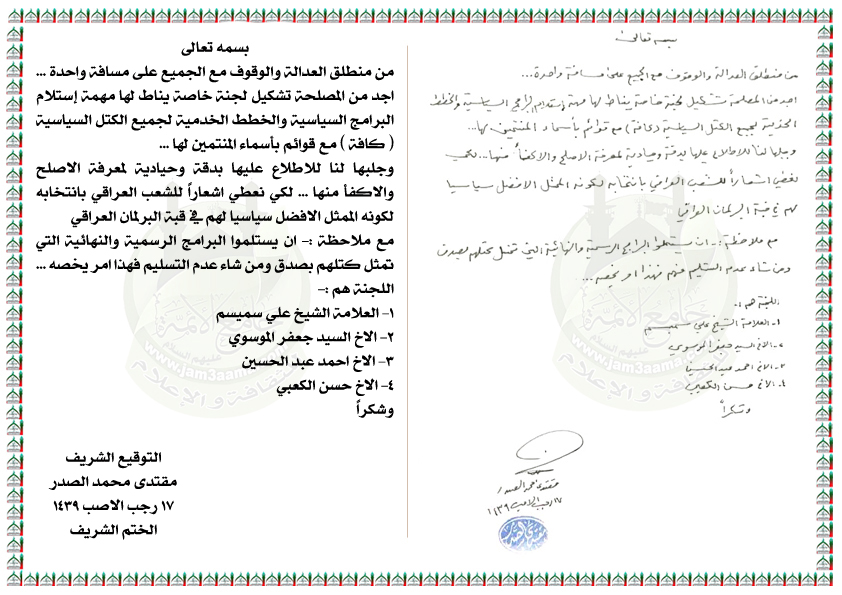 بسمه تعالى
من منطلق العدالة والوقوف مع الجميع على مسافة واحدة ...
اجد من المصلحة تشكيل لجنة خاصة يناط لها مهمة إستلام
البرامج السياسية والخطط الخدمية لجميع الكتل السياسية
( كافة ) مع قوائم بأسماء المنتمين لها ...
وجلبها لنا للاطلاع عليها بدقة وحيادية لمعرفة الاصلح
والاكفأ منها ... لكي نعطي اشعاراً للشعب العراقي بانتخابه
لكونه الممثل الافضل سياسيا لهم في قبة البرلمان العراقي
مع ملاحظة :- ان يستلموا البرامج الرسمية والنهائية التي
تمثل كتلهم بصدق ومن شاء عدم التسليم فهذا امر يخصه ...
اللجنة هم :-
١- العلامة الشيخ علي سميسم
٢- الاخ السيد جعفر الموسوي
٣- الاخ احمد عبد الحسين
٤- الاخ حسن الكعبي
وشكراً
التوقيع الشريف
مقتدى محمد الصدر
١٧ رجب الاصب ١٤٣٩
الختم الشريف
بسمه تعالى
من منطلق العدالة والوقوف مع الجميع على مسافة واحدة...
اجد من المصلحة تشكيل لجنة خاصة يناط لها مهمة إستلام البرامج السياسية والخطط
الخدمية لجميع الكتل السياسية (كافة) مع قوائم بأسماء المنتمين لها...
وجلبها لنا للاطلاع عليها بدقة وحيادية لمعرفة الاصلح والاكفأ منها... لكي
نعطي اشعاراً للشعب العراقي بانتخابه لكونه الممثل الافضل سياسيا
لهم في قبة البرلمان العراقي
مع ملاحظة :- ان يستلموا البرامج الرسمية والنهائية التي تمثل كتلهم بصدق
ومن شاء عدم التسليم فهذا امر يخصه...
اللجنة هم :-
١- العلامة الشيخ علي سميسم
٢- الاخ السيد جعفر الموسوي
٣- الاخ احمد عبد الحسين
٤- الاخ حسن الكعبي
وشكراً
مقتدى محمد الصدر
١٧ رجب الاصب ١٤٣٩
جامع الأئمة
www.jam3aama.com
للثقافة والإعلام